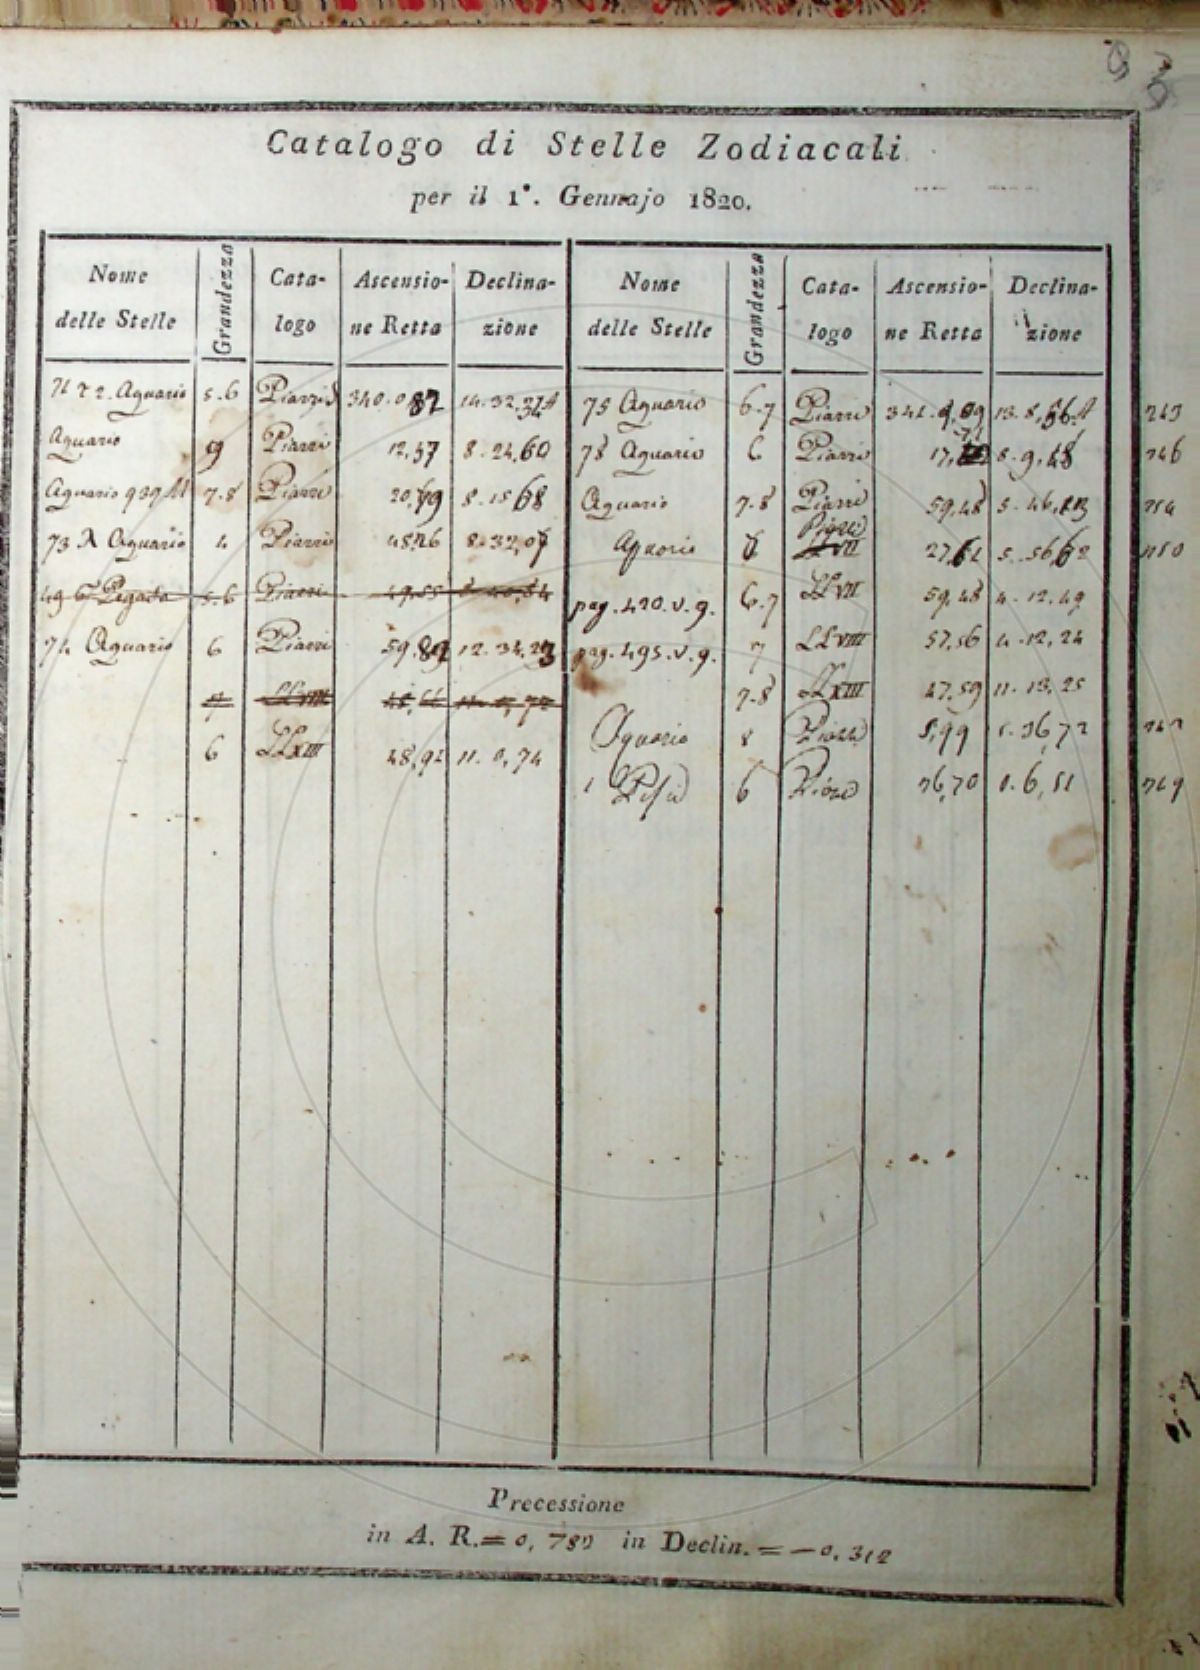 93
Catalogo di Stelle Zodiacali
per il 1°. Gennajo 1820.
Nome delle Stelle Grandezza Cata-logo Ascensio-ne Retta Declina-zione Nome delle Stelle Grandezza Cata-logo Ascensio-ne Retta Declina-zione
71 τ2. Aquario 5.6 Piazzi 340.0 14.32, 75 Aquario 6.7 Piazzi 341. 13.8,56.A
Aquario 9 Piazzi 12,57 8.24,60 78 Aquario 6 Piazzi 17, 8.9,48 246
Aquario 939 M 7.8 Piazzi 20,79 8.15,68 Aquario 7.8 Piazzi 59,48 5.46,
73 λ Aquario 4 Piazzi 48,26 8.32,0 Aquario Piazzi 27,61 5.56,62
49 σ Pegaso 5.6 Piazzi 49,55 pag. 420.v.g. 6.7 LLVII 59,48 4.12,49
74 Aquario 6 Piazzi 59,89 12.34,23 pag. 495.v.g. 7 LLVIII 57,56 4.12,24
7 LLVIII 7.8 LLXIII 47,59 11.13,25
6 LLXIII 48,92 11.0,74 Aquario 8 Piazzi 5,99 5.36,72
1 Pesci 6 Piazzi 76,70 0.6,51 269
Precessione
in A. R.= 0,782 in Declin.= -0,312